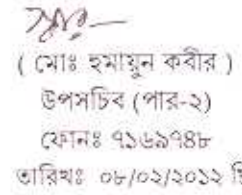 ( মোঃ হুমায়ুন কবীর )
উপসচিব (পার-২)
ফোনঃ ৭১৬৯৭৪৮
তারিখঃ ০৮/০২/২০১২ খ্রি